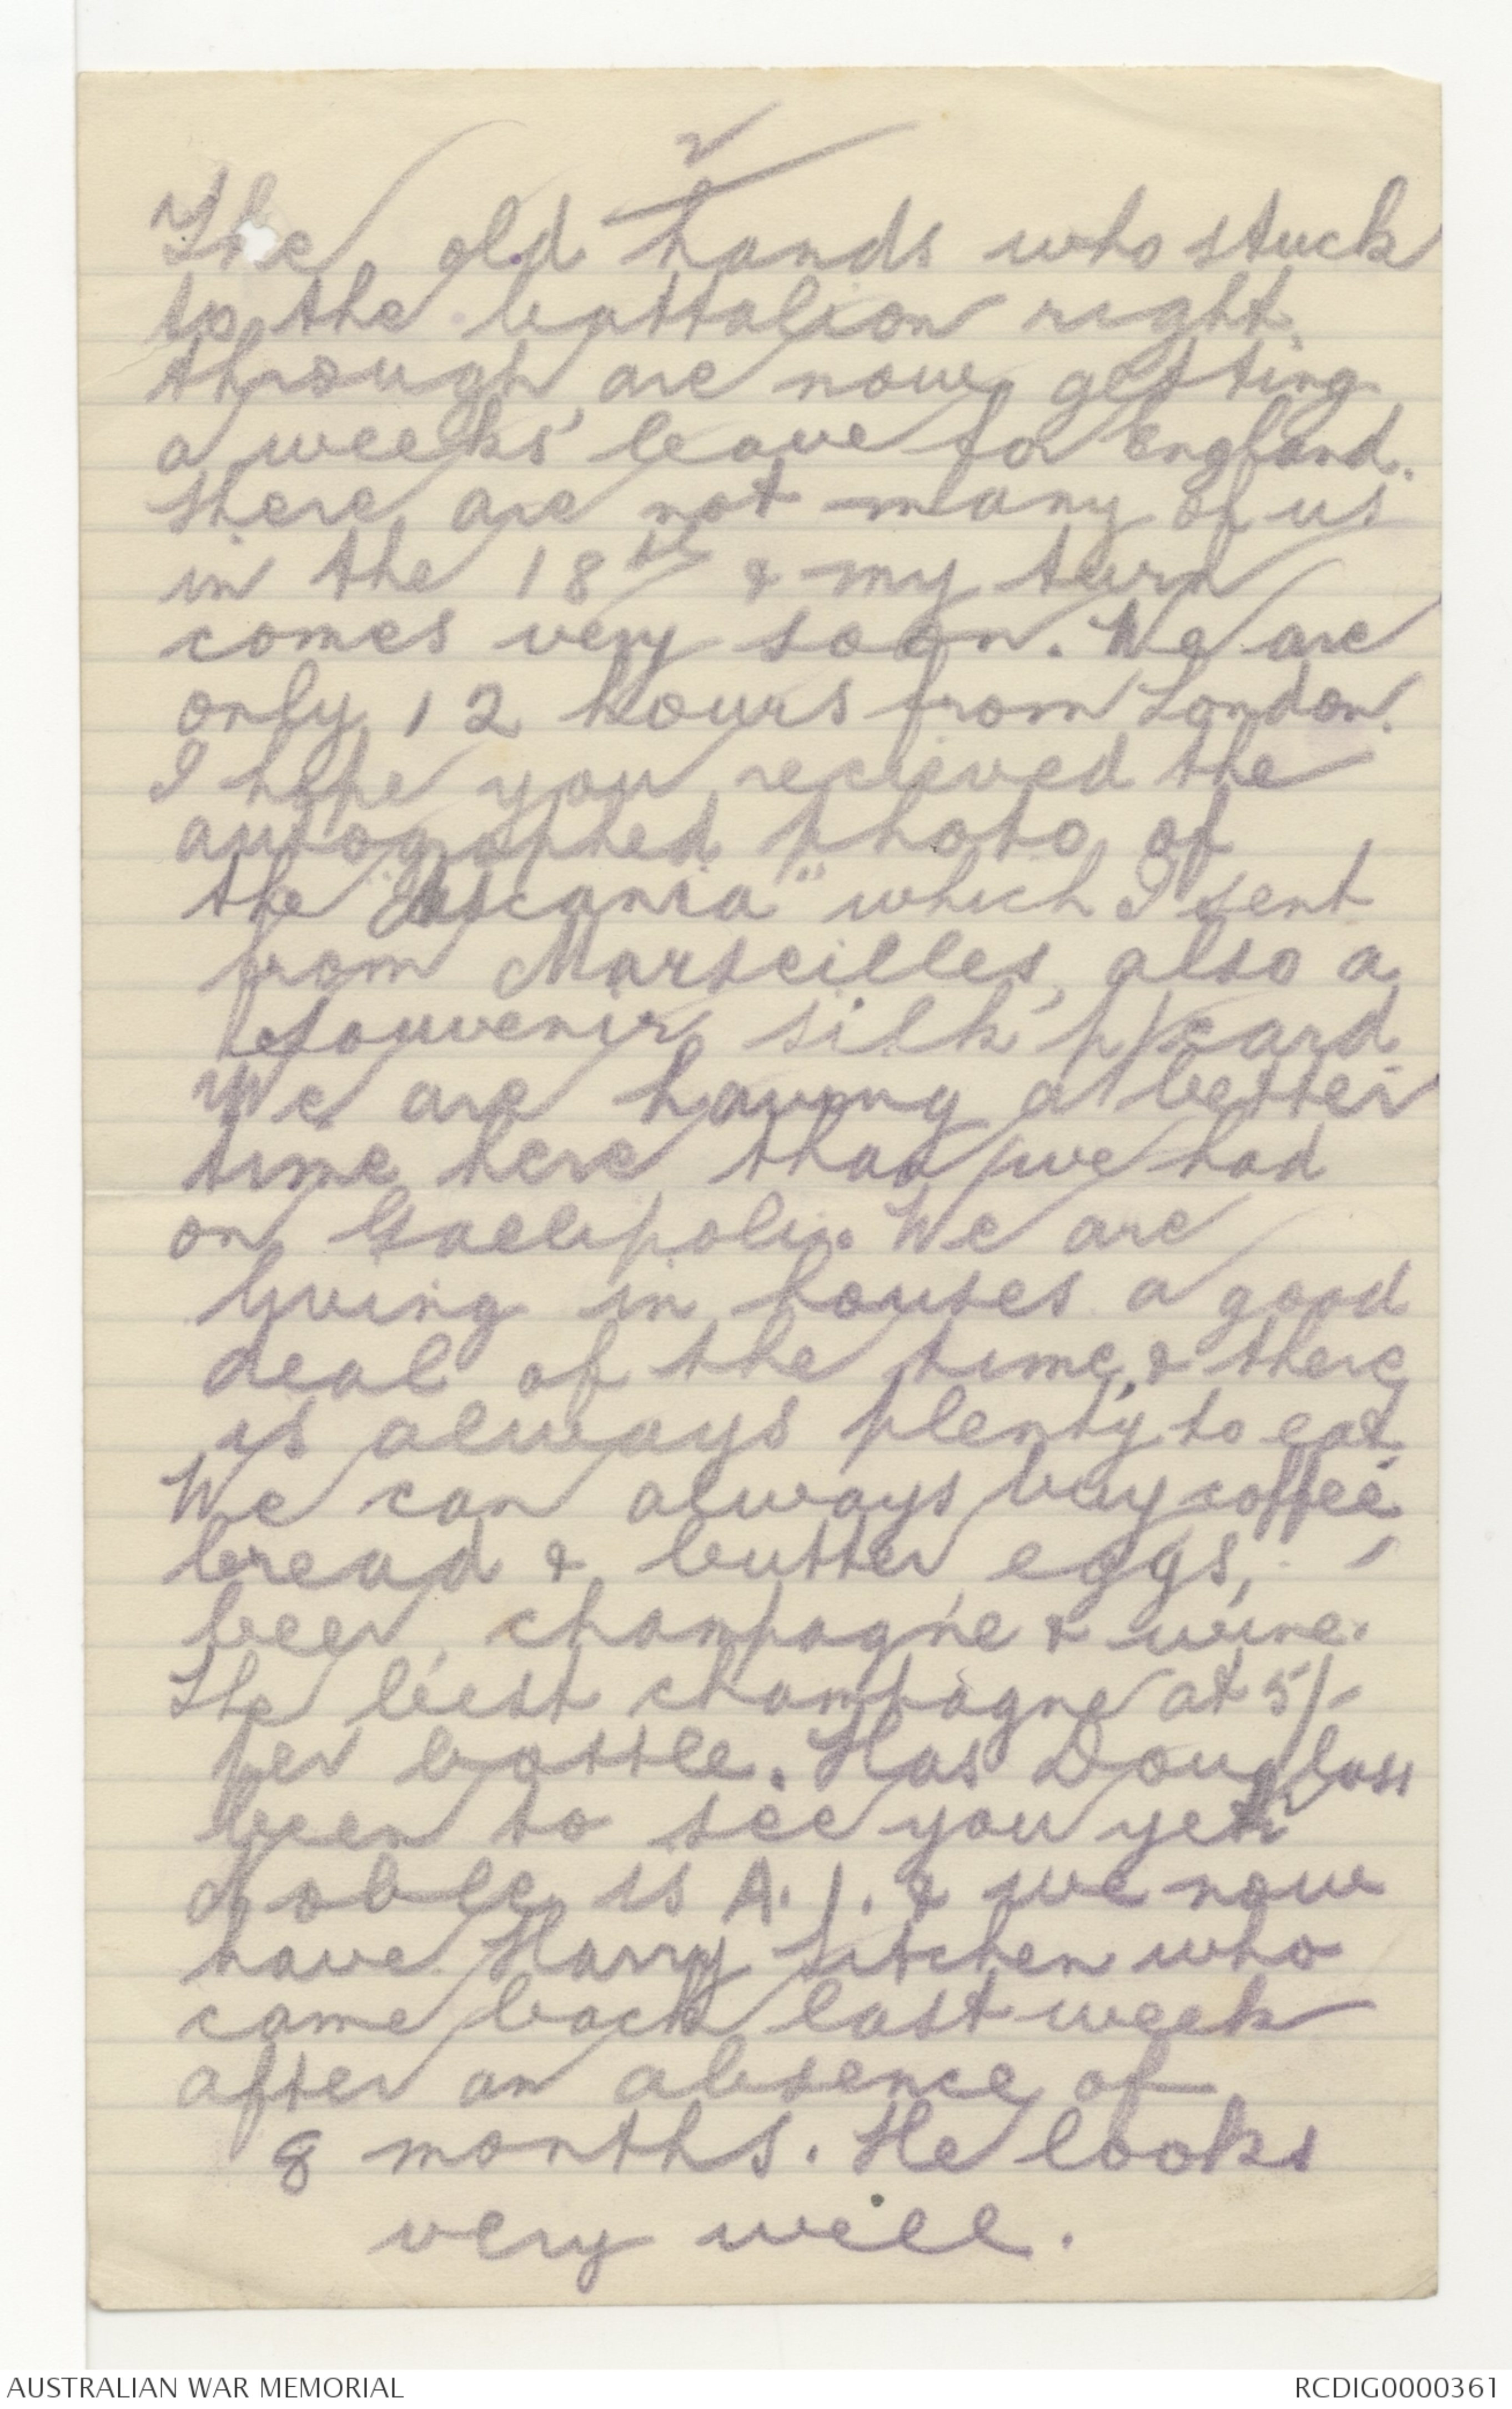 2
The old hands who stuck
to the battalion right
through are now getting
a weeks' leave for England.
There are not many of us
in the 18th & my turn
comes very soon. We are
only 12 hours from London.
I hope you recieved the
autographed photo of
the "Ascania" which I sent
from Marseilles, also a
souvenir silk p/card
We are having a better
time here than we had
on Gallipoli. We are
living in houses a good
deal of the time, & there
is always plenty to eat.
We can always buy coffee
bread & butter eggs,
beer, champagne & wine.
The best champagne at 5/-
per bottle. Has Douglass
been to see you yet
Noble is A.1. & we now
have Harry Kitchen who
came back last week
after an absence of
8 months. He looks
very well.
AUSTRALIAN WAR MEMORIAL
RCDIG0000361